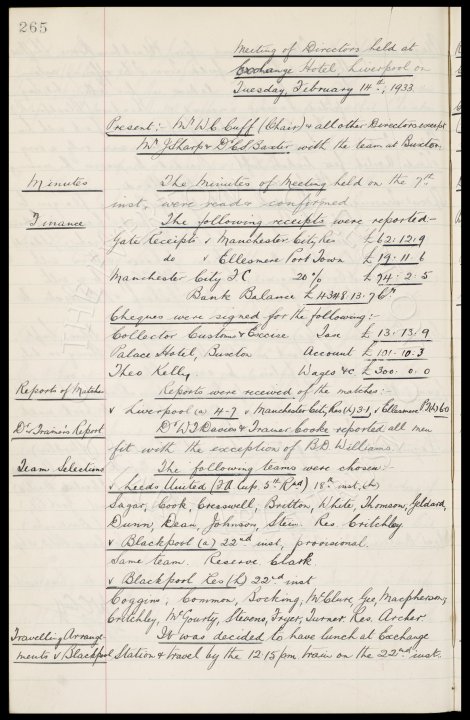 265
Meeting of Directors held at
Exchange Hotel, Liverpool on
Tuesday, February 14th, 1933
Present:- Mr W.C. Cuff (Chair) & all other Directors except
Mr J Sharp & Dr C.S. Baxter with the team at Buxton.
Minutes
The Minutes of Meeting held on the 7th
inst. were read & confirmed
Finance
The following receipts were reported:-
Gate Receipts v Manchester City Res £62.12.9
do v Ellesmere Port Town £19.11.6
Manchester City F.C 20% £74.2.5
Bank Balance
Cheques were signed for the following:-
Collector Customs & Excise Tax £13.13.9
Palace Hotel, Buxton Account £101.10.3
Theo Kelly Wages &c £300.0.0
Reports of Matches
Reports were received of the matches:-
v Liverpool (a) 4-7 v Manchester City Res (h) 3-1, v Ellesmere P (h) 6-0
Dr & Trainer's Report
Dr W.J. Davies & Trainer Cooke reported all men
fit with the exception of B.D. Williams.
Team Selections
The following teams were chosen:-
v Leeds United (FA Cup. 5th Rnd) 18th inst. (h)
Sagar, Cook, Cresswell, Britton, White, Thomson, Geldard,
Dunn, Dean, Johnson, Stein. Res. Critchley
v Blackpool (a) 22nd inst, provisional.
Same team. Reserve Clark
v Blackpool Res (h) 22nd inst
Coggins, Common, Bocking, McClure, Gee, Macpherson,
Critchley, McGourty, Stevens, Fryer, Turner. Res. Archer.
Travelling Arrange-
ments v Blackpool
It was decided to have lunch at Exchange
Station & travel by the 12.15 p.m. train on the 22nd inst.